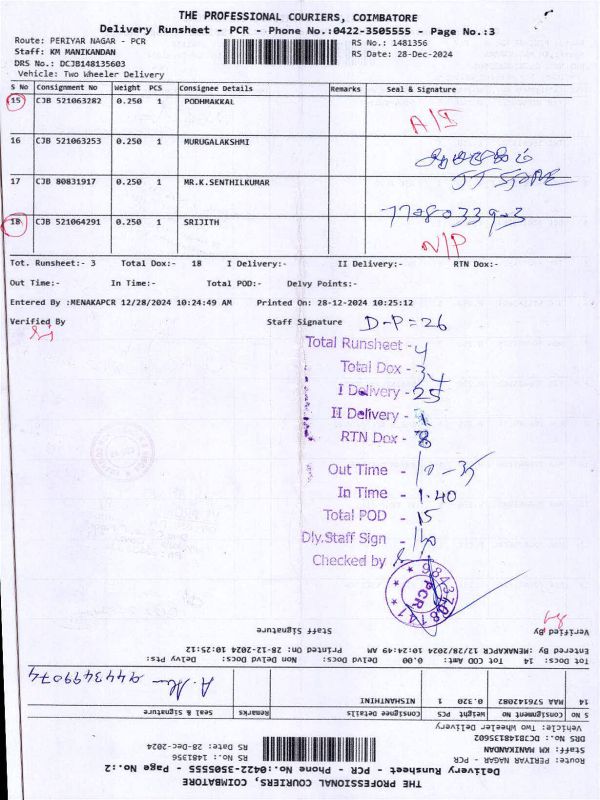 THE PROFESSIONAL COURIERS, COIMBATORE
Delivery Runsheet - PCR - Phone No.:0422-3505555 - Page No.:3
Route: PERIYAR NAGAR - PCR
RS No.: 1481356
Staff: KM MANIKANDAN
RS Date: 28-Dec-2024
DRS No.: DCJB148135603
Vehicle: Two Wheeler Delivery
S No Consignment No Weight PCS Consignee Details Remarks Seal & Signature
15 CJB 521063282 0.250 1 PODHMAKKAL
A/I
16 CJB 521063253 0.250 1 MURUGALAKSHMI
17 CJB 80831917 0.250 1 MR.K.SENTHILKUMAR
18 CJB 521064291 0.250 1 SRIJITH
N/P
Tot. Runsheet:- 3 Total Dox:- 18 I Delivery:- II Delivery:- RTN Dox:-
Out Time:- In Time:- Total POD:- Delvy Points:-
Entered By :MENAKAPCR 12/28/2024 10:24:49 AM Printed On: 28-12-2024 10:25:12
Verified By Staff Signature D-P=26
Total Runsheet - 4
Total Dox - 34
I Delivery - 25
II Delivery - 1
RTN Dox - 8
Out Time - 10-35
In Time - 1.40
Total POD - 15
Dly.Staff Sign -
Checked by
PCR
THE PROFESSIONAL COURIERS, COIMBATORE
Delivery Runsheet - PCR - Phone No.:0422-3505555 - Page No.:2
Route: PERIYAR NAGAR - PCR
RS No.: 1481356
Staff: KM MANIKANDAN
RS Date: 28-Dec-2024
DRS No.: DCJB148135602
Vehicle: Two Wheeler Delivery
S No Consignment No Weight PCS Consignee Details Remarks Seal & Signature
14 MAA 576142082 0.320 1 NISHANTHINI
9443499074
Tot Docs: 14 Tot COD Amt: 0.00 Delvd Docs: Non Delvd Docs: Delvy Pts:
Entered By :MENAKAPCR 12/28/2024 10:24:49 AM Printed On: 28-12-2024 10:25:12
Verified By Staff Signature